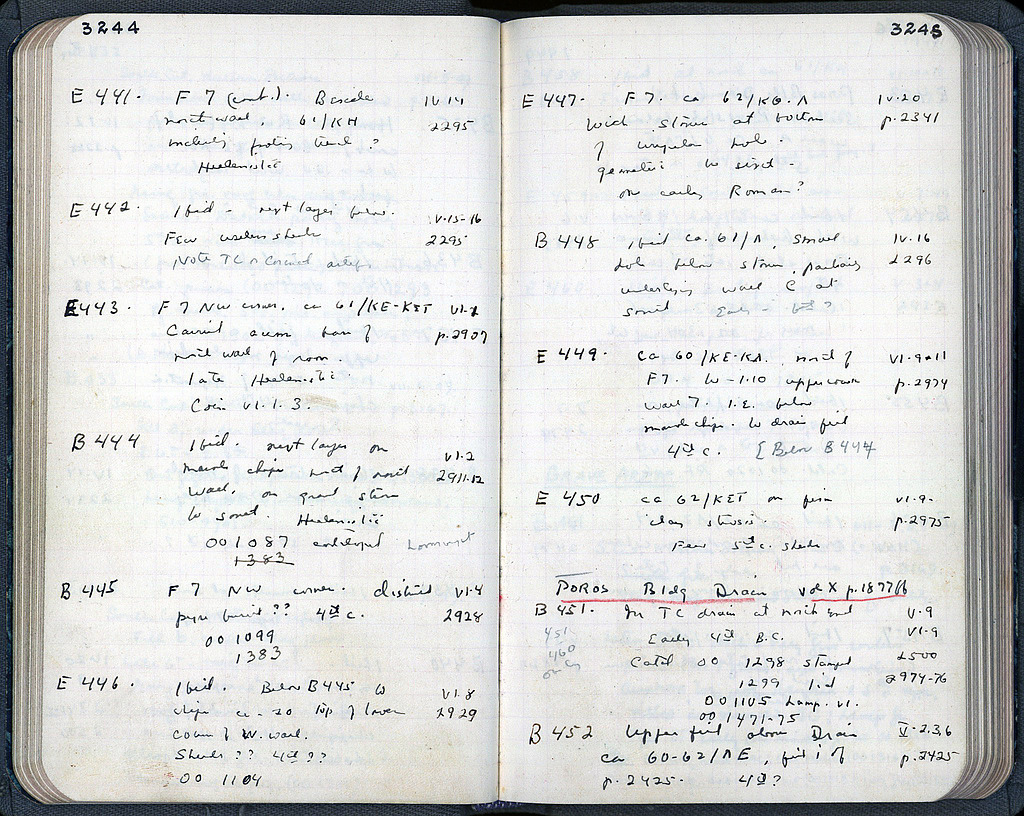 3244
E 441. F 7 (cont.). Beside IV-14
north wall. 61/KH 2295
footing trench?
Hellenistic
E 442. Ibid - next layer below. IV-15-16
Few useless sherds 2295
Note TC
E443. F 7 NW corner. ca 61/KE-KST VI-1
accum. p.2907
north wall of room
late Hellenistic
Coin VI-1-3.
B 444 Ibid. next layer on VI-2
marble chips north of north 2911-12
wall.
to south Hellenistic
OO 1087 catalogued
1383
B 445 F 7 NW corner. disturbed VI-4
pyre burial?? 4th c. 2928
OO 1099
1383
E 446. Ibid. Below B445 to VI-8
ca -20 top of lower 2929
course of W. wall.
Sherds ?? 4th ??
OO 1104
3245
E 447. F 7. ca 62/KΘ-Λ IV-20
with stones at bottom p.2341
of irregular hole.
geometric to
or early Roman?
B 448 Ibid ca 61/Λ, small IV-16
hole below stones, partially 2296
underlying wall C at
south Early - ?
E 449. ca 60/KE-KΛ. north of VI-9+11
F7. to -1.10 upper p.2974
wall 7 I.E. below
marble chips. to drain fill
4th c. [Below B444
E 450 ca 62/KST on VI-9-
clay stosis p.2975
Few 5th c. sherds
POROS Bldg Drain vol X p.1877ff
B 451. In TC drain at north end V-9
451- Early 4th B.C. VI-9
460 Catal OO 1298 stamped 2500
1299 lid 2974-76
OO1105 Lamp. VI.
OO 1471-75
B 452 Upper fill above Drain V-2,3,6
ca 60-62/ΛE, fill i of p.2425
p. 2425. 4th?